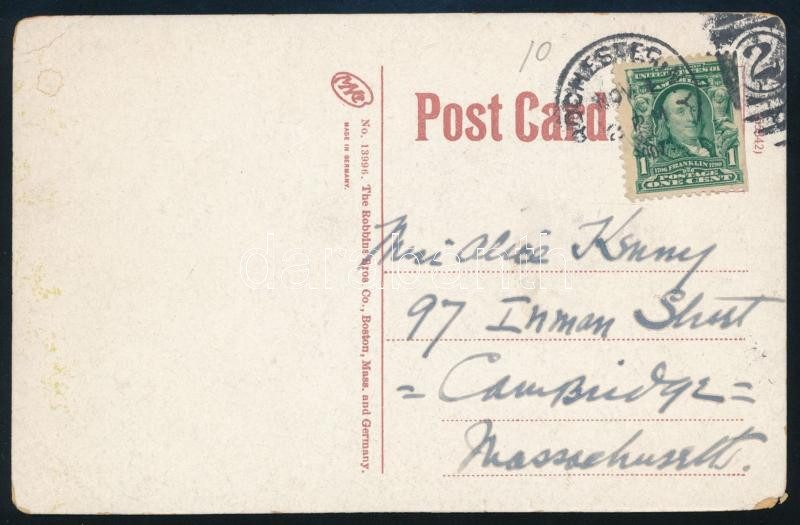 10
Post Card
ROCHESTER, N.Y.
NOV
2
UNITED STATES OF AMERICA
1706 FRANKLIN 1790
1 1
POSTAGE
ONE CENT
No. 13996. The Robbins Bros. Co., Boston, Mass. and Germany.
MADE IN GERMANY.
Miss Alice Kenny
97 Inman Street
= Cambridge =
Massachusetts.
darabanth